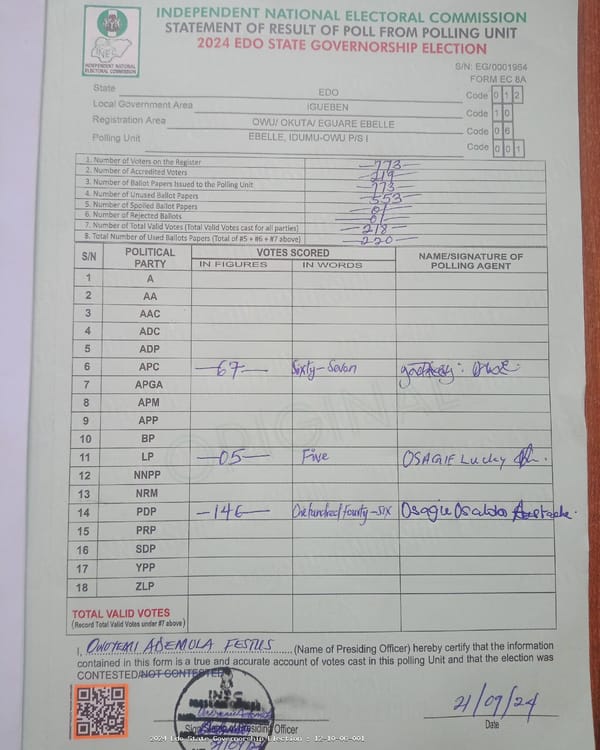 INDEPENDENT NATIONAL ELECTORAL COMMISSION
STATEMENT OF RESULT OF POLL FROM POLLING UNIT
2024 EDO STATE GOVERNORSHIP ELECTION
INEC
INDEPENDENT NATIONAL
ELECTORAL COMMISSION
S/N: EG/0001954
FORM EC 8A
State EDO Code 0 1 2
Local Government Area IGUEBEN Code 1 0
Registration Area OWU/ OKUTA/ EGUARE EBELLE Code 0 6
Polling Unit EBELLE, IDUMU-OWU P/S I Code 0 0 1
1. Number of Voters on the Register 773
2. Number of Accredited Voters 219
3. Number of Ballot Papers Issued to the Polling Unit 773
4. Number of Unused Ballot Papers 553
5. Number of Spoiled Ballot Papers 01
6. Number of Rejected Ballots 01
7. Number of Total Valid Votes (Total Valid Votes cast for all parties) 218
8. Total Number of Used Ballots Papers (Total of #5 + #6 + #7 above) 220
S/N POLITICAL PARTY VOTES SCORED NAME/SIGNATURE OF POLLING AGENT
IN FIGURES IN WORDS
1 A
2 AA
3 AAC
4 ADC
5 ADP
6 APC 67 Sixty-Seven
7 APGA
8 APM
9 APP
10 BP
11 LP 05 Five OSAGIE Lucky
12 NNPP
13 NRM
14 PDP 146 One hundred/fourty-six Osagie
15 PRP
16 SDP
17 YPP
18 ZLP
TOTAL VALID VOTES
(Record Total Valid Votes under #7 above)
I, OWOYEMI ADEMOLA FESTUS (Name of Presiding Officer) hereby certify that the information
contained in this form is a true and accurate account of votes cast in this polling Unit and that the election was
CONTESTED/NOT CONTESTED
INEC
Presiding Officer
21/09/24
Date
2024 Edo State Governorship Election : 12-10-06-001